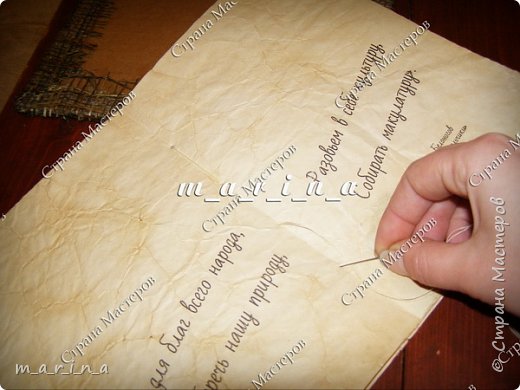 Разовьем в себе культуру,
Собирать макулатуру.
для благ всего народа,
беречь нашу природу.
m_a_r_i_n_a
marina
Страна Мастеров
Страна Мастеров
Страна Мастеров
Страна Мастеров
Страна Мастеров
Страна Мастеров
Страна Мастеров
Страна Мастеров
© Страна Мастеров